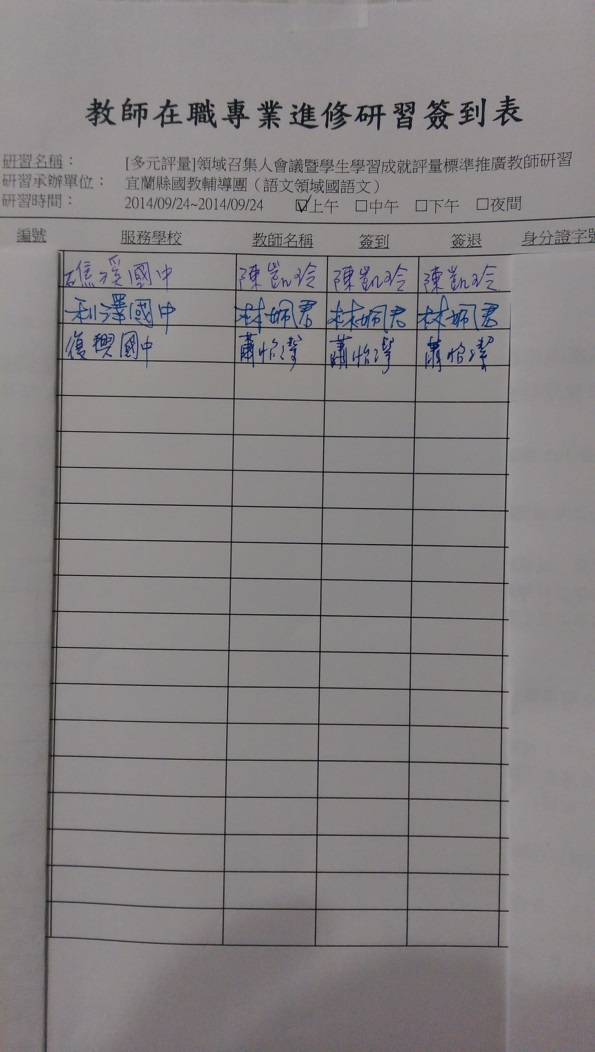 教師在職專業進修研習簽到表
研習名稱： [多元評量]領域召集人會議暨學生學習成就評量標準推廣教師研習
研習承辦單位： 宜蘭縣國教輔導團（語文領域國語文）
研習時間： 2014/09/24~2014/09/24 ☑上午 □中午 □下午 □夜間
編號 服務學校 教師名稱 簽到 簽退 身分證字號
礁溪國中 陳凱玲 陳凱玲 陳凱玲
利澤國中 林姵君 林姵君 林姵君
復興國中 蕭怡潔 蕭怡潔 蕭怡潔